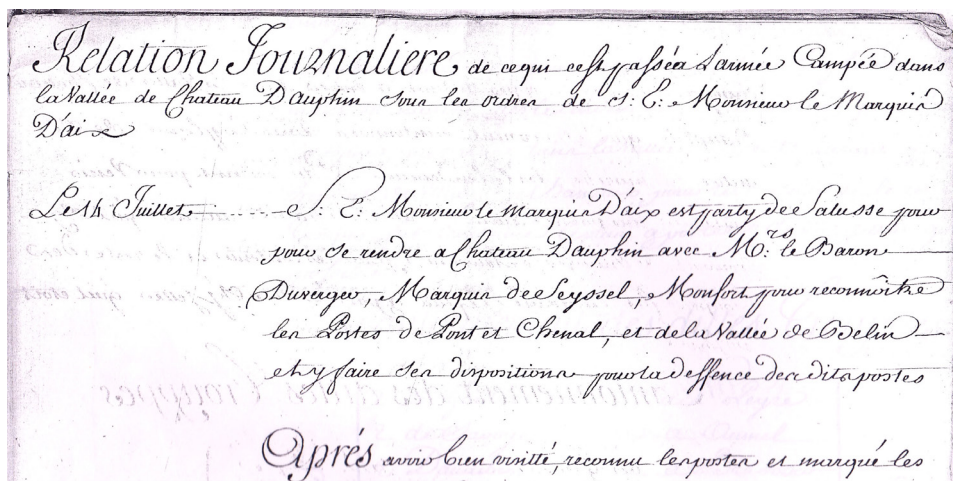 Relation Journaliere de cequi cest passé a L'armée Campée dans
la Vallée de Chateau Dauphin sous les ordres de S: E: Monsieur le Marquis
D'aix
Le 14 Juillet S: E: Monsieur le marquis D'aix est party de Salusse pour
pour se rendre a Chateau Dauphin avec M:rs le Baron
Duverger, Marquis de Seyssel, Monfort pour reconnoître
les Postes de Pont et Chenal, et de la Vallée de Belin
et y faire ses dispositions pour la deffence desdits postes
Aprés avoir bien visitté, reconnu les postes et marqué les